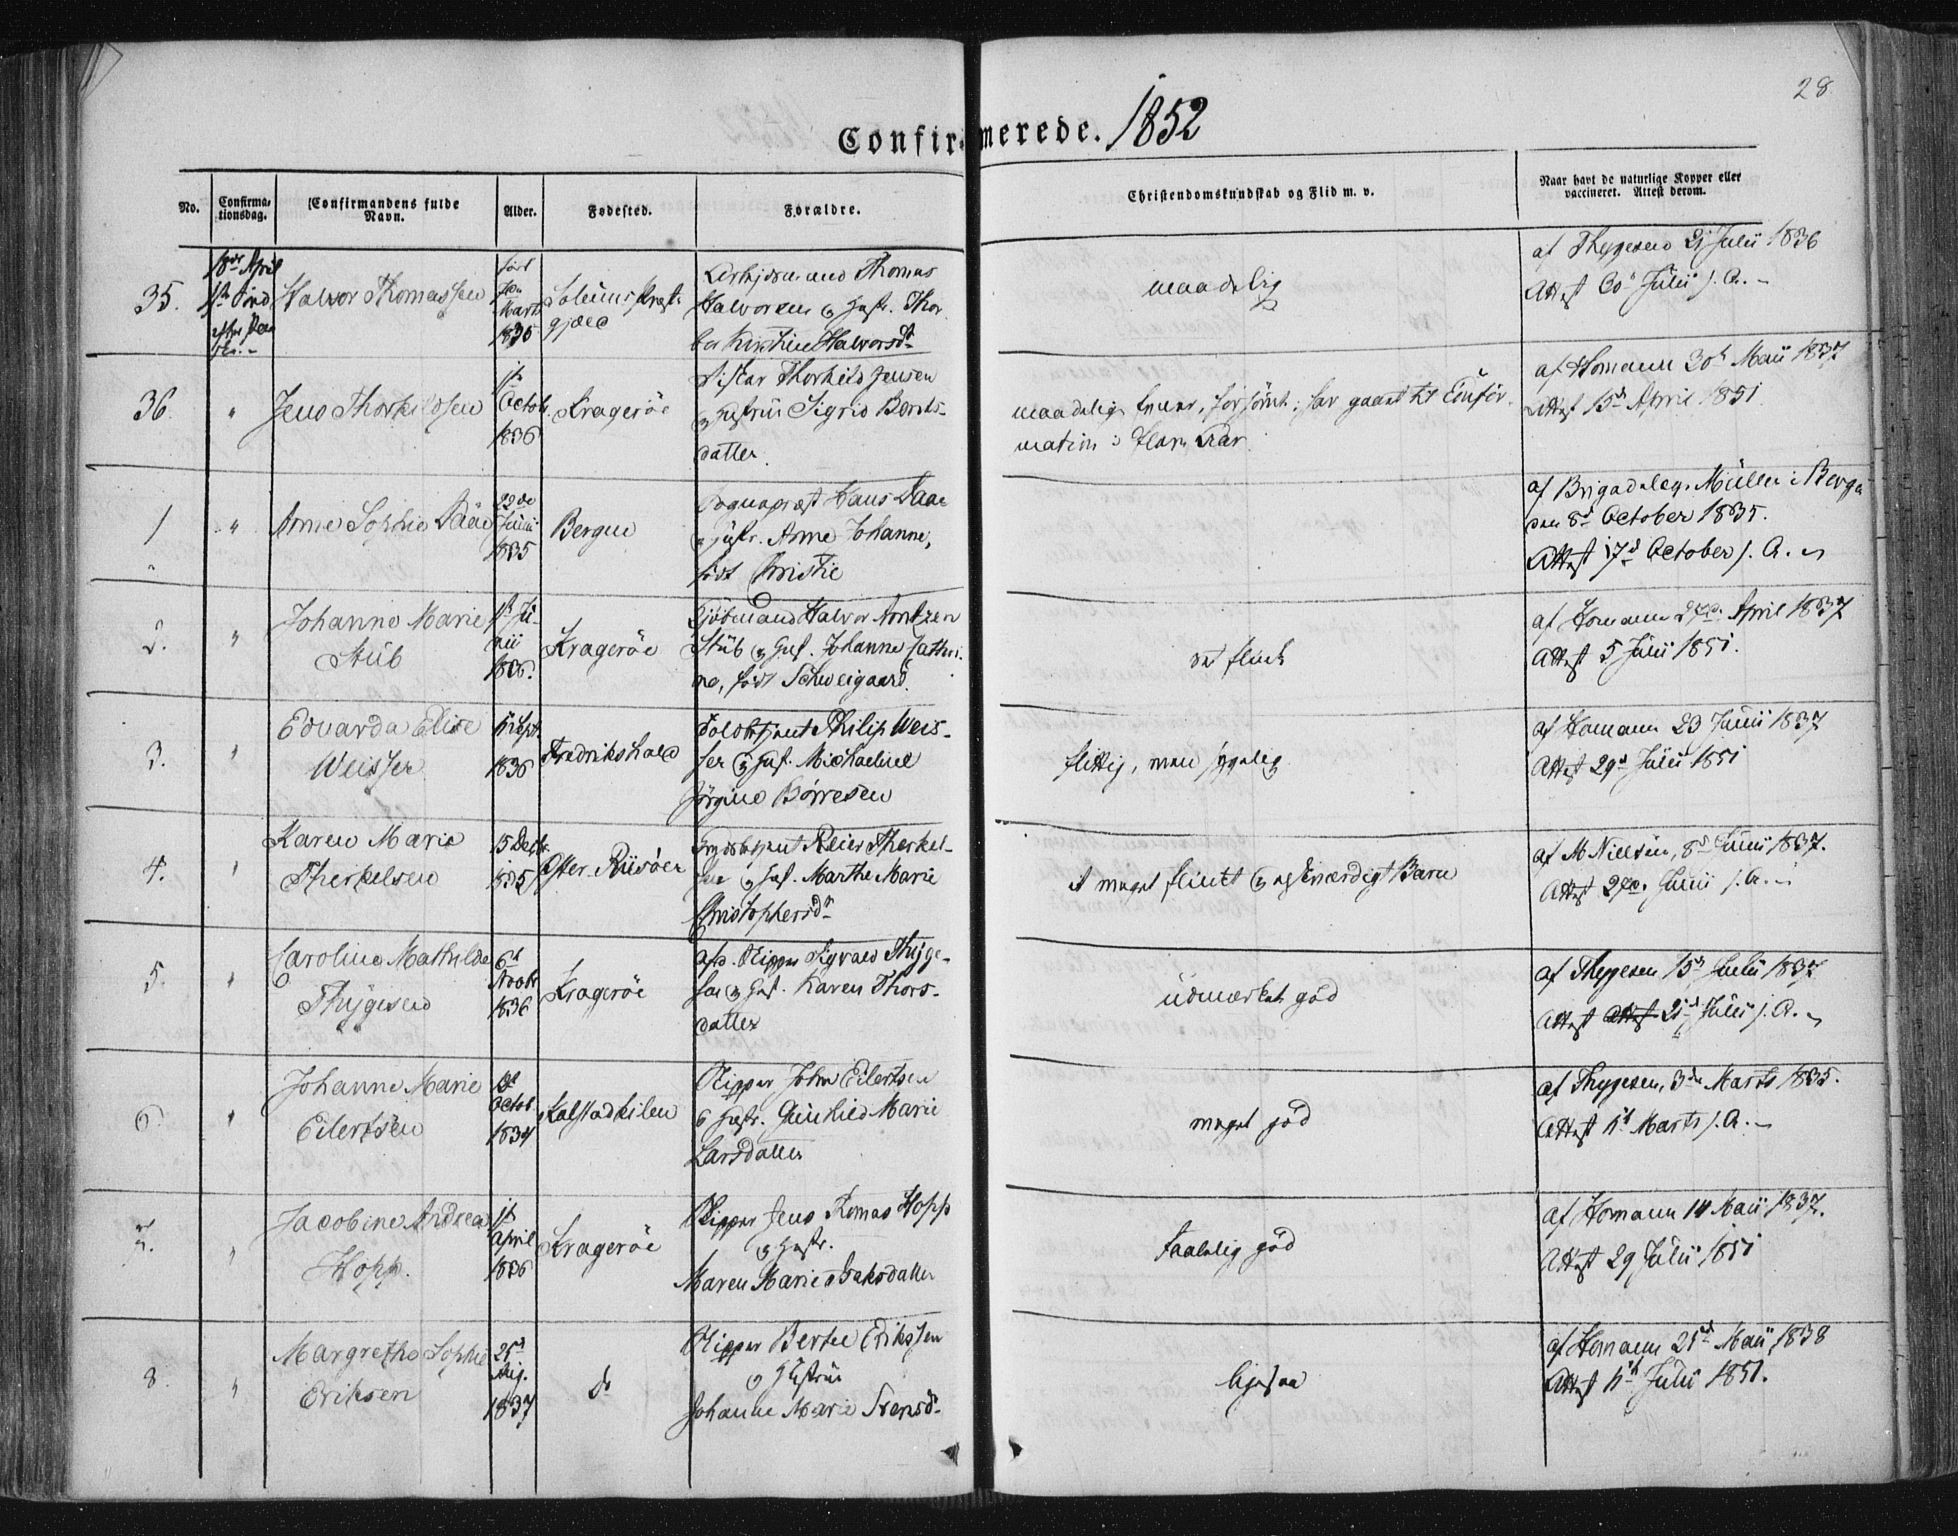 28
Confirmerede. 1852
No.
Confirma-
tionsdag.
Confirmandens fulde
Navn.
Alder.
Fødested.
Forældre.
Christendomskundskab og Flid m. v.
Naar havt de naturlige Kopper eller
vaccineret. Attest derom.
35.
18de April
1ste Sønd
efter Paa
Halvor Thomassen
født
Marts
1835
Solums Præste
gjæld
Thomas
Halvorsen og Hustr. Thor
Kirstine Halvorsdr
maadelig
af Thygesen 21 Julii 1836
Attest Julii s. A. -
36.
"
Jens Thorkildsen
Octob.
1836
Kragerøe
Thorkild Jensen
og Hustrue Sigrid Bernts-
datter.
maadelig Evner, forsømt; har gaaet til Confir-
mation i flere Aar
af Homann 30te Maii 1837
Attest 15de April 1851
1
"
Anne Sophie Daae
22de
Junii
1835
Bergen
Sognepræst Hans Daae
og Hustr. Anne Johanne,
født Christie
af Brigadelæge Müller i Bergen
den 8de October 1835.
Attest 17de October s. A.
2.
"
Johanne Marie
Stub
1ste Ju-
nii
1836.
Kragerøe
Sjømand Halvor Arntzen
Stub og Hust. Johanne Cathri-
ne, født Schweigaard.
flink
af Homann April 1837
Attest 5 Julii 1851.
3.
"
Edvarda Elise
Weisser
Sept.
1836
Fredrikshald
Toldbetjent Philip Weis-
ser og Hust. Michaeline
Jørgine Børresen
flittig, men sygelig
af Homann 23 Junii 1837
Attest 29de Julii 1851
4.
"
Karen Marie
Therkelsen
15 Decbr.
1835
Øster-Riisøer
Reier Therkel-
sen og Hust. Marthe Marie
Christophersdr
et meget flinkt og elskværdigt Barn
af M Nielsen, 8de Junii 1837.
Attest Junii s. A. -
5.
"
Caroline Mathilde
Thygesen
6te
Novbr
1836
Kragerøe
afd. Skipper Sigvald Thyge-
sen og Hust. Karen Thors-
datter
udmærket god
af Thygesen 15de Julii 1837
Attest Attest 21de Julii s. A.
6
"
Johanne Marie
Eilertsen
Octob.
1834
Kalstadkilen
Skipper John Eilertsen
og Hustr. Gunhild Marie
Larsdatter
meget god
af Thygesen, 3die Marts 1835.
Attest Marts s. A. -
7.
"
Jacobine Andrea
Hopp.
1ste
April
1836
Kragerøe
Skipper Jens Thomas Hopp
og Hustr.
Maren Marie Isaksdatter
taalelig god
af Homann 14 Maii 1837.
Attest 29 Julii 1851
8.
"
Margrethe Sophie
Eriksen
25de
Aug.
1837
do
Skipper Bertel Erikssen
og Hustrue
Johanne Marie Svensdr
ligesaa
af Homann 21de Maii 1838
Attest Julii 1851.